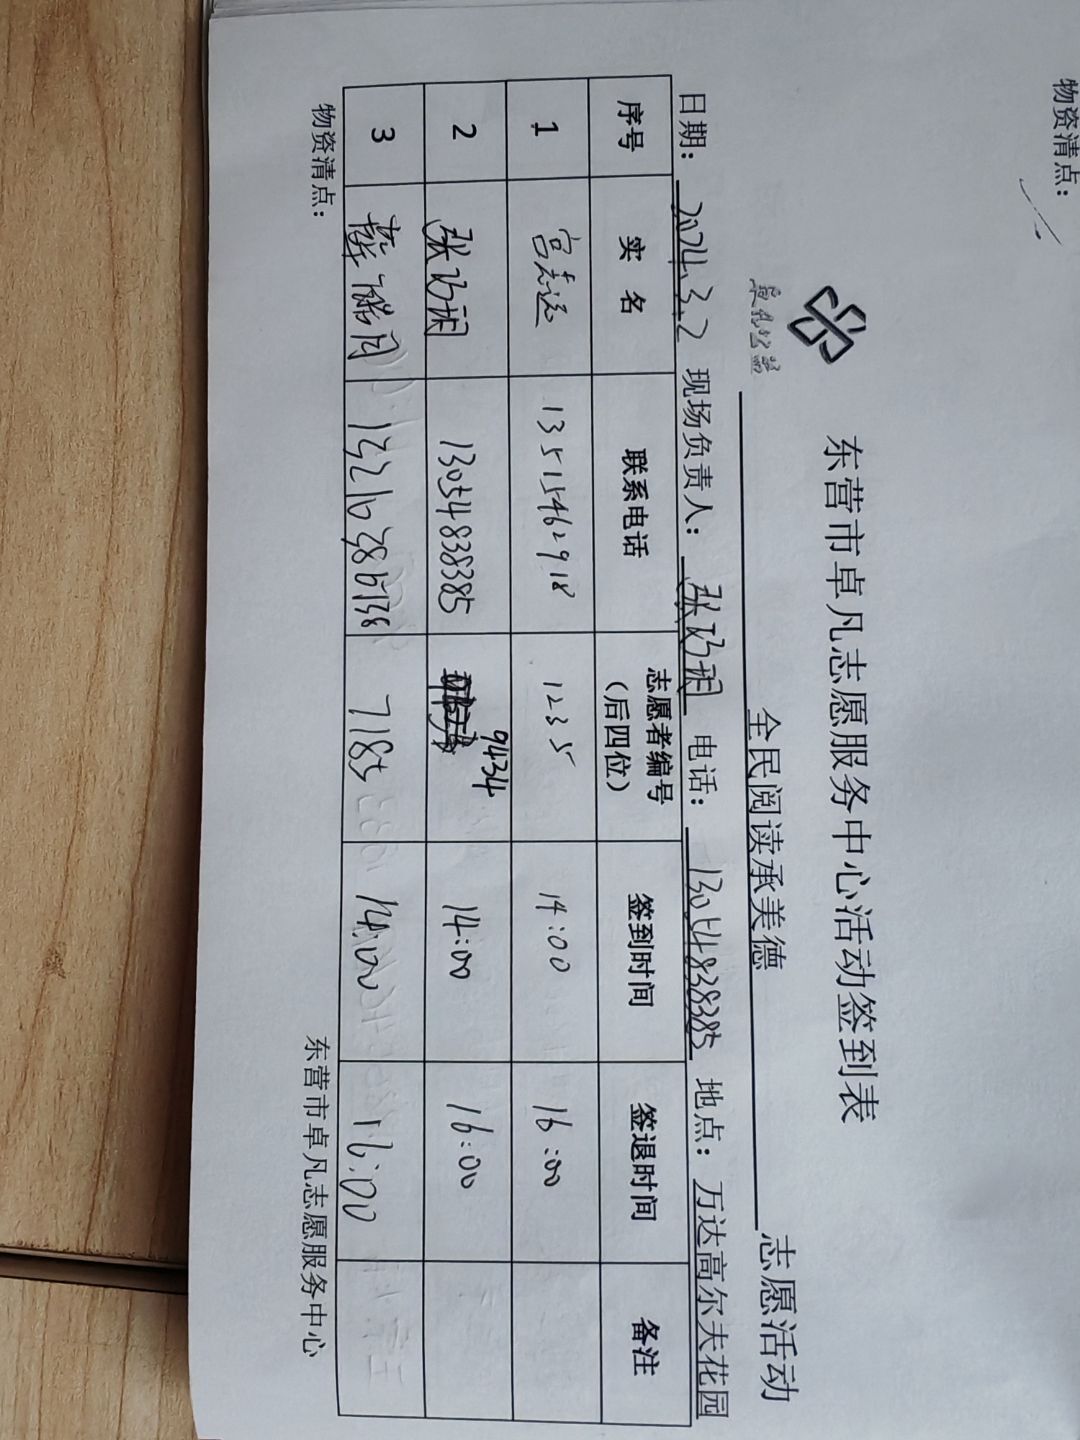 物资清点：
东营市卓凡志愿服务中心活动签到表
卓凡公益
全民阅读承美德 志愿活动
日期：2024.3.2 现场负责人：张巧玥 电话：13054838385 地点：万达高尔夫花园
序号 实 名 联系电话 志愿者编号（后四位） 签到时间 签退时间 备注
1 宫志远 13515462918 1235 14:00 16:00
2 张巧玥 13054838385 9434 14:00 16:00
3 7185 14:00 16:00
物资清点： 东营市卓凡志愿服务中心